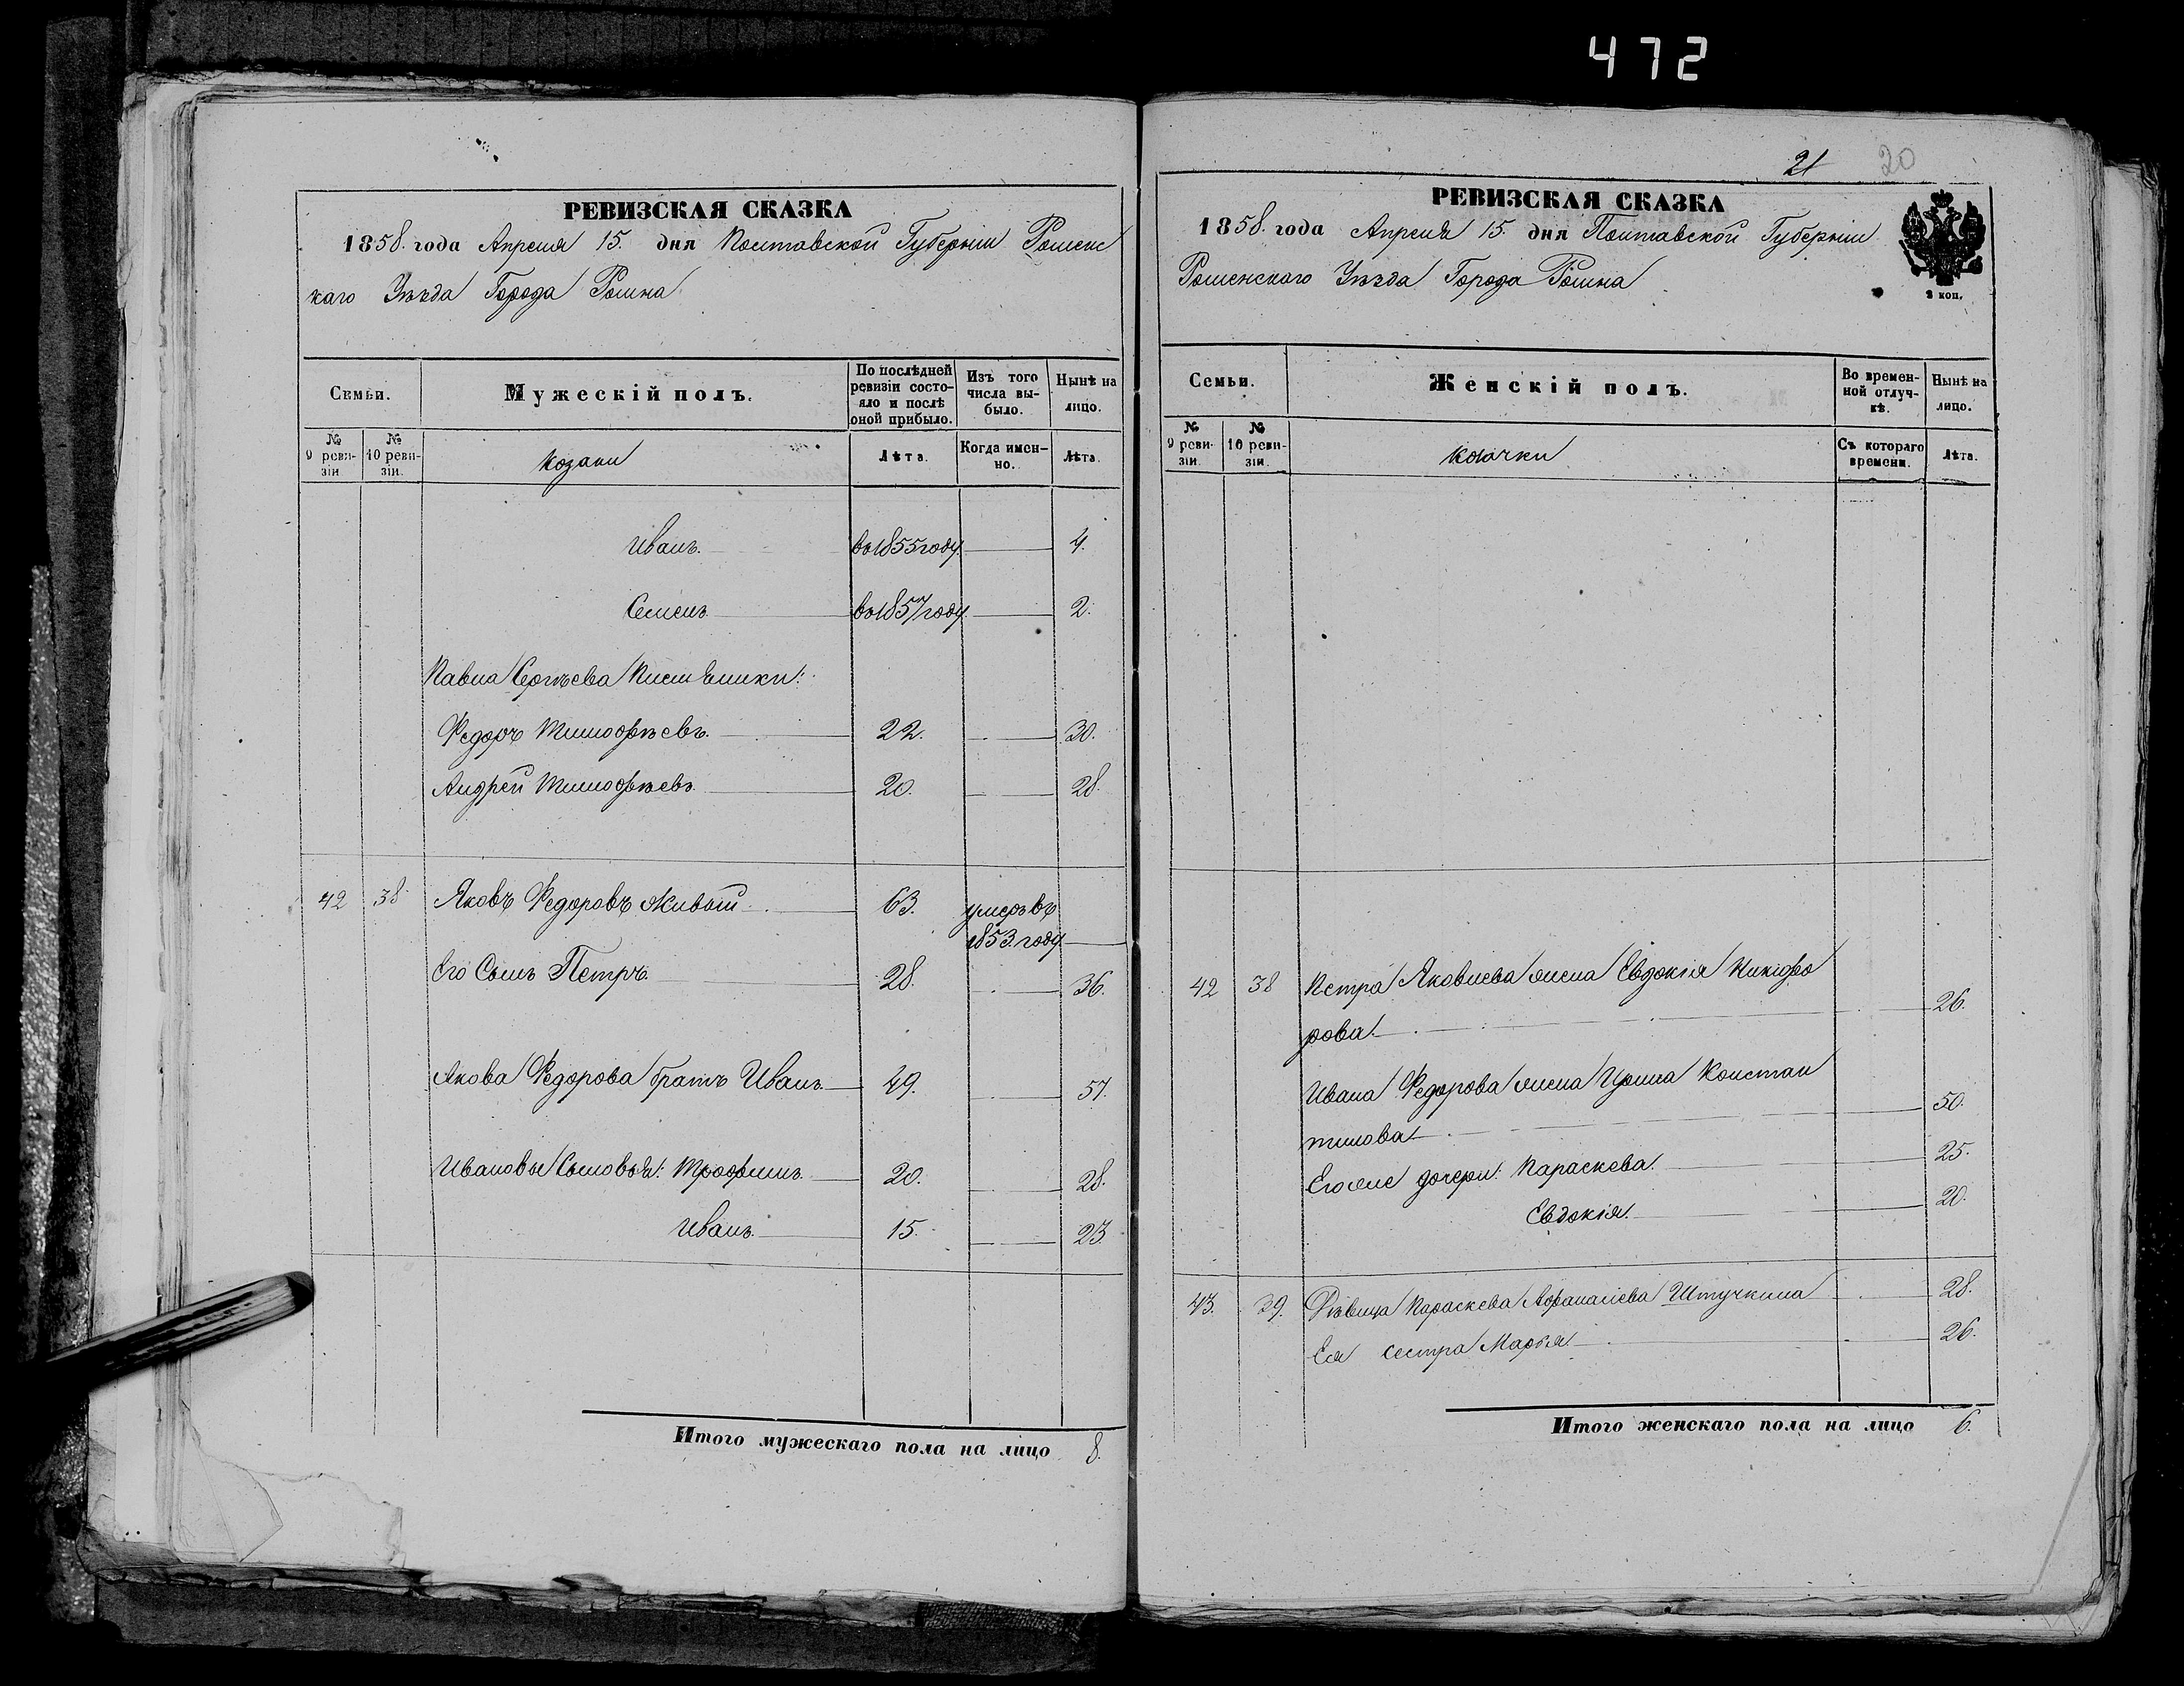 472
РЕВИЗСКАЯ СКАЗКА
1858. года Апреля 15. дня Полтавской Губерніи Роменс
каго Уѣзда Города Ромна
Семьи.
Мужескій полъ.
По послѣдней ревизіи состояло и послѣ оной прибыло.
Изъ того числа выбыло.
Нынѣ на лицо.
№ 9 ревизіи
№ 10 ревизіи.
Козаки
Лѣта.
Когда именно.
Лѣта.
Иванъ. въ 1855 году 4.
Семенъ въ 1857 году 2.
Павла Сергѣева племянники:
Федоръ Тимофѣевъ. 22. 30.
Андрей Тимофѣевъ 20. 28.
42 38 Яковъ Федоровъ Живый 63. умеръ въ
1853. году
Его Сынъ Петръ. 28. 36.
Якова Федорова братъ Иванъ 49. 57.
Ивановы Сыновья: Трофимъ 20. 28.
Иванъ. 15. 23.
Итого мужескаго пола на лицо 8.
21 20
РЕВИЗСКАЯ СКАЗКА
1858. года Апреля 15. дня Полтавской Губерніи
Роменскаго Уѣзда Города Ромна
2 коп.
Семьи.
Женскій полъ.
Во временной отлучкѣ.
Нынѣ на лицо.
№ 9 ревизіи.
№ 10 ревизіи.
Козачки
Съ котораго времени.
Лѣта.
42 38 Петра Яковлева жена Евдокія Никифо
рова. 26.
Ивана Федорова жена Ирина Констан
тинова 50.
Его же дочери: Параскева. 25.
Евдокія. 20.
43. 39. Дѣвица Параскева Афанасіева Штучкина 28.
Ея сестра Марья 26.
Итого женскаго пола на лицо 6.